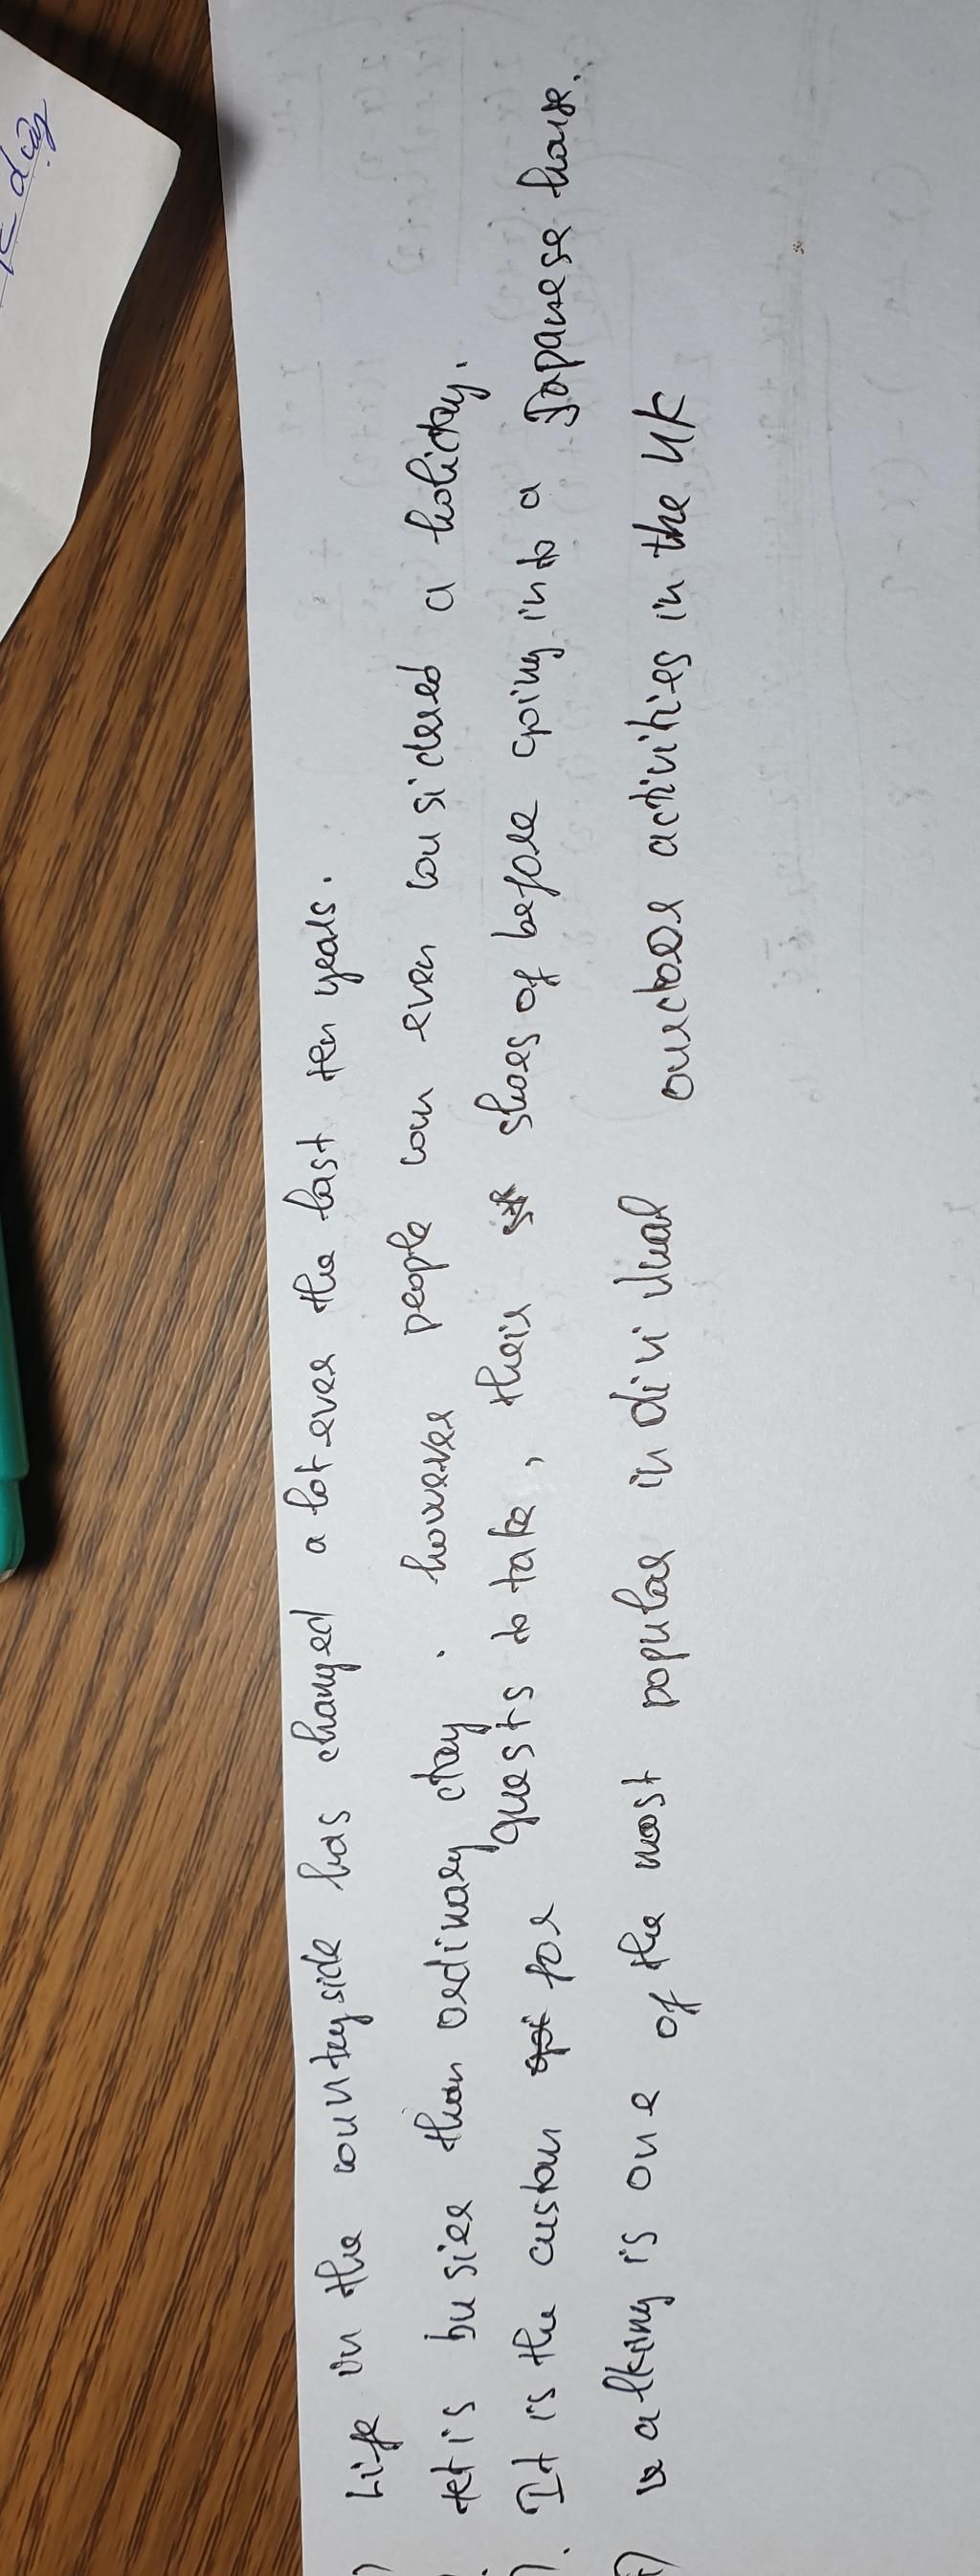 ) Life in the countryside has changed a lot over the last ten years.
tet is busier than ordinary day. however people can even considered a holiday.
). It is the custom for guests to take, their shoes of before going into a Japanese house.
) walking is one of the most popular individual ourdoor activities in the UK
day